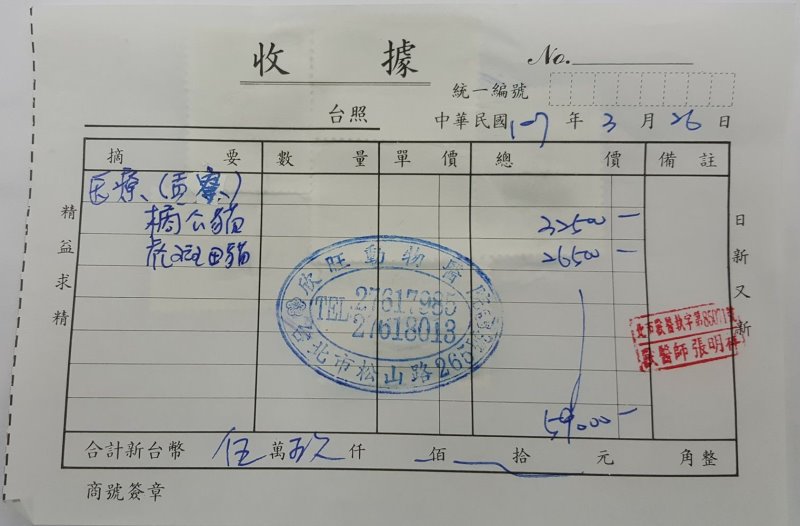 收 據
No.
統一編號
台照
中華民國 107 年 3 月 26 日
摘要 數量 單價 總價 備註
医療、
橘公貓 32500-
虎斑母貓 26500-
59000-
精益求精
日新又新
欣旺動物醫院
TEL 27617985
27618013
北市松山路265
北市獸醫執字第
獸醫師張明
合計新台幣 伍萬玖仟 佰 拾 元 角整
商號簽章